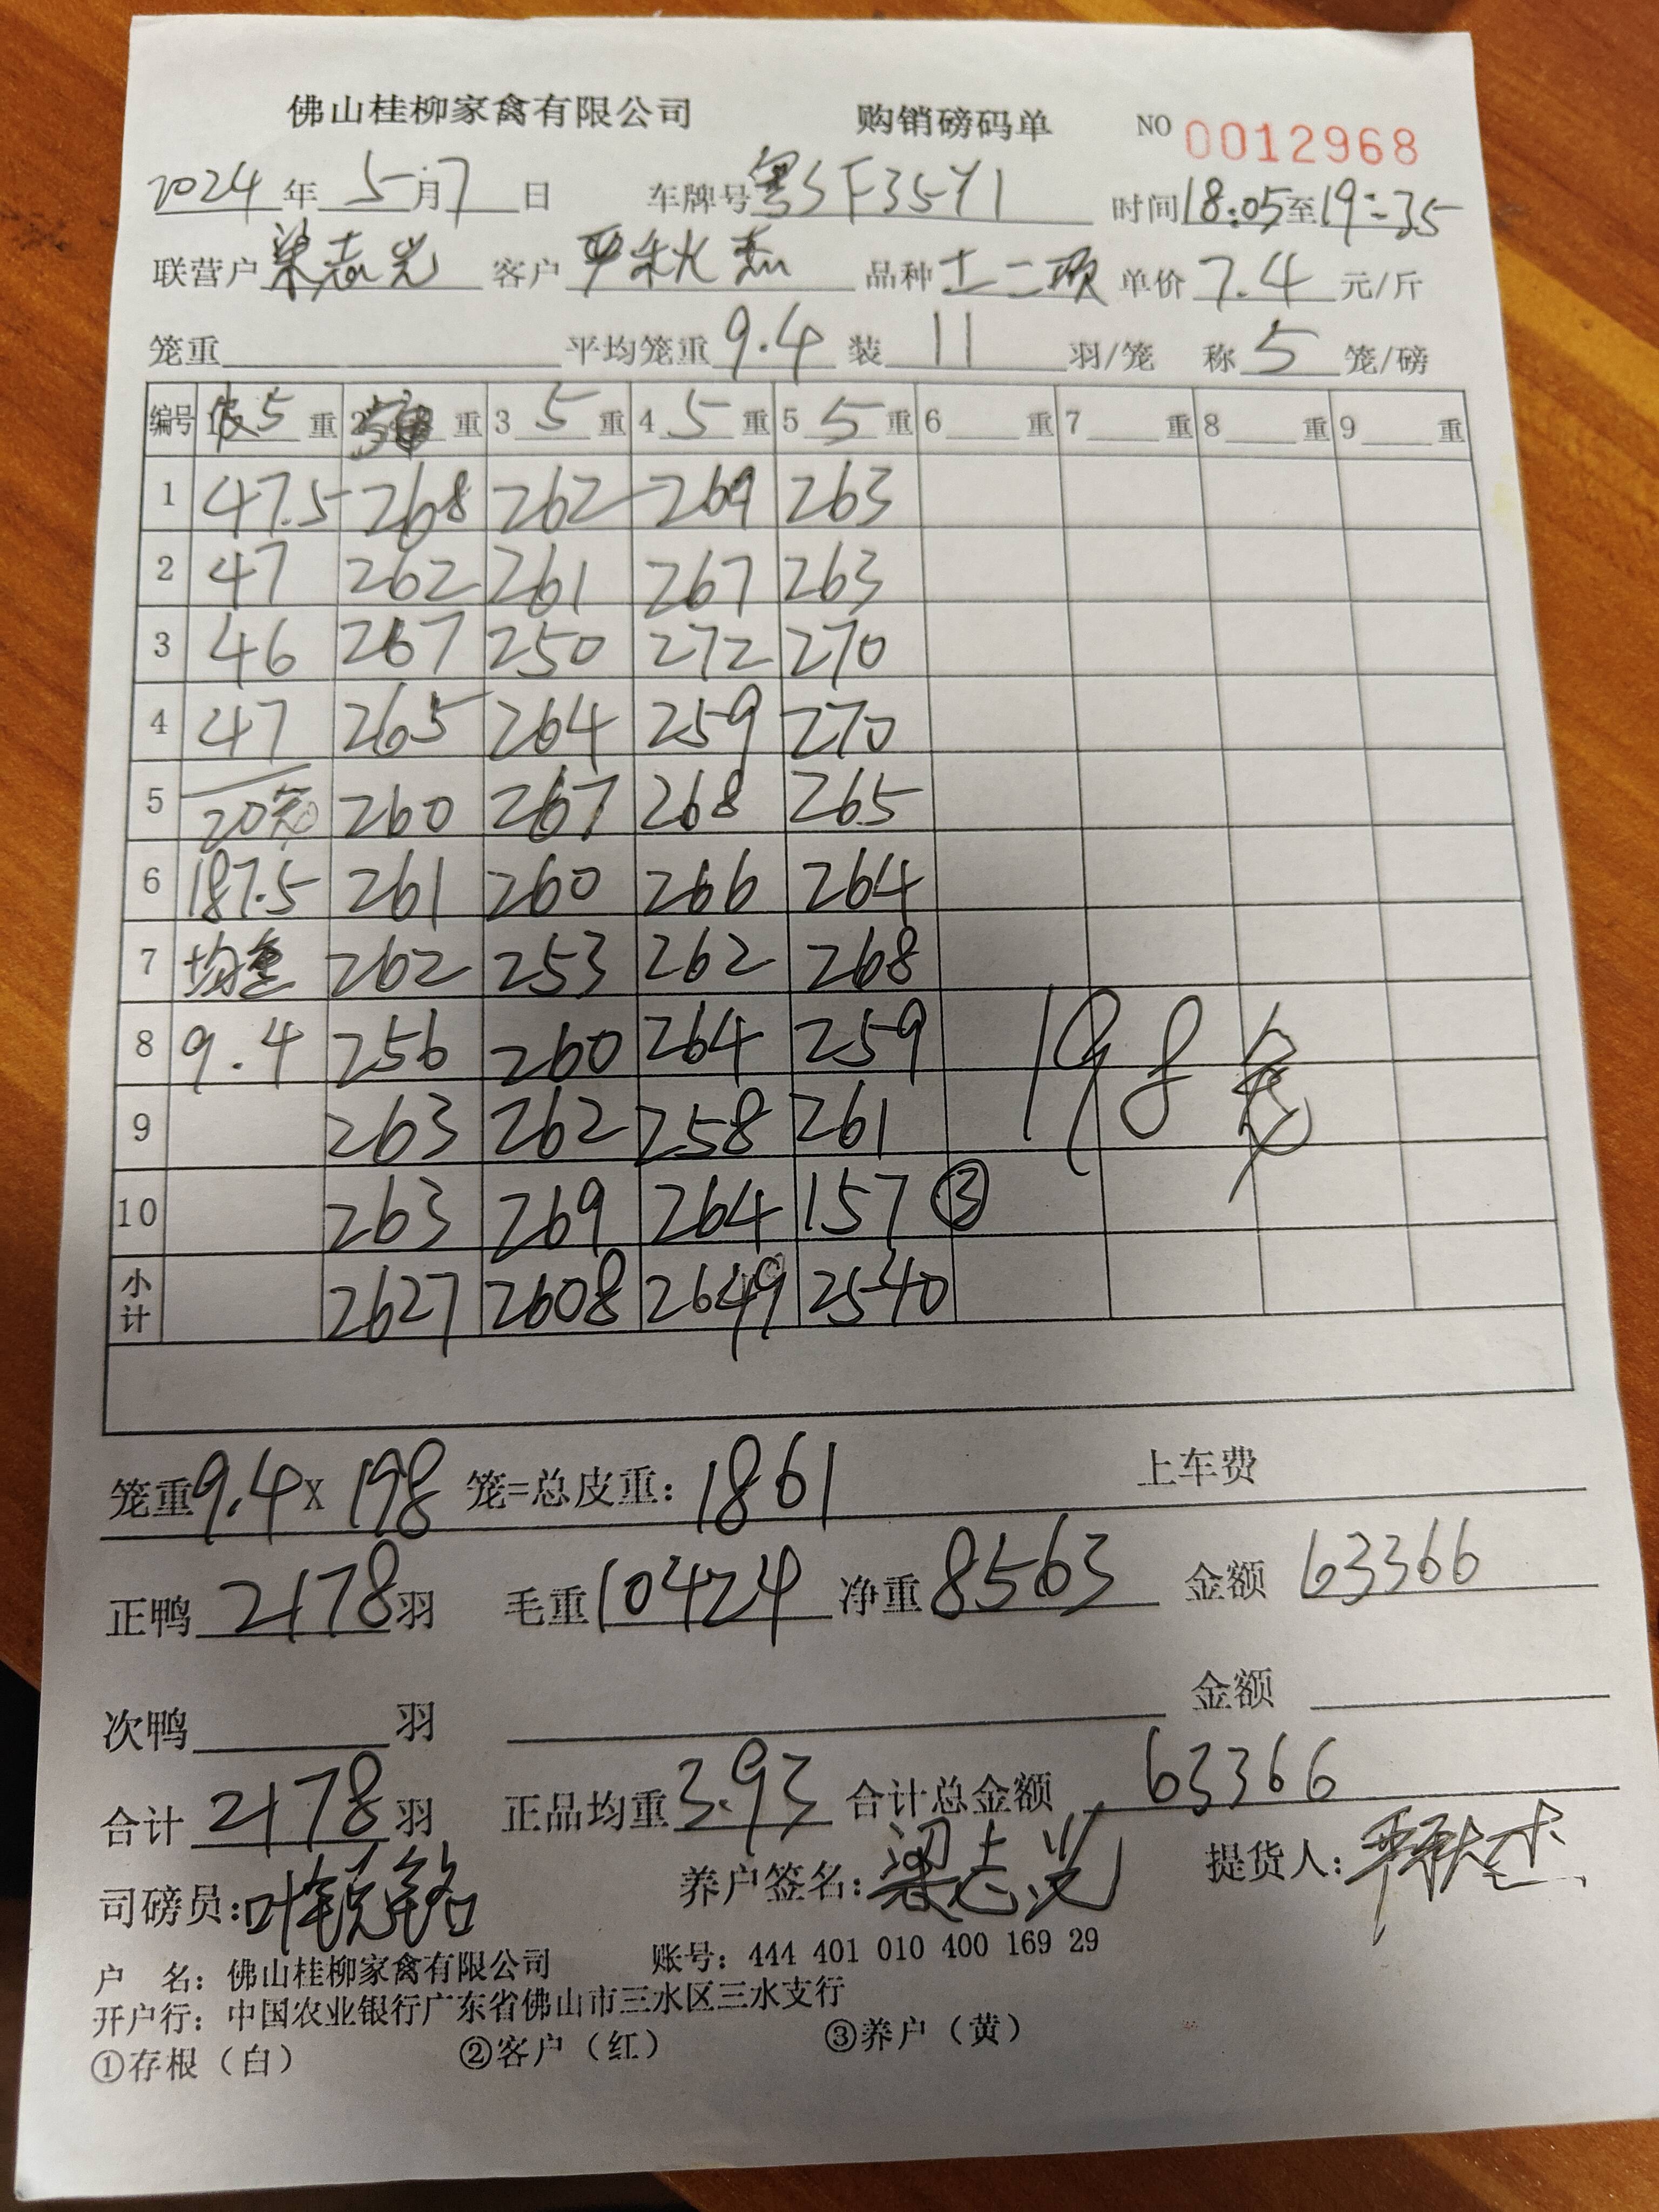 佛山桂柳家禽有限公司 购销磅码单 NO 0012968
2024年5月7日 车牌号粤SF35Y1 时间18:05至19:35
联营户梁志光 客户严秋杰 品种 单价7.4元/斤
笼重 平均笼重9.4 装11羽/笼 称5笼/磅
编号 1 5重 2 重 3 5重 4 5重 5 5重 6 重 7 重 8 重 9 重
1 47.5 268 262 269 263
2 47 262 261 267 263
3 46 267 250 272 270
4 47 265 264 259 270
5 20笼 260 267 268 265
6 187.5 261 260 266 264
7 均重 262 253 262 268
8 9.4 256 260 264 259 198笼
9 263 262 258 261
10 263 269 264 157 ③
小计 2627 2608 2649 2540
笼重9.4X198笼=总皮重:1861 上车费
正鸭2178羽 毛重10424 净重8563 金额63366
次鸭 羽 金额
合计2178羽 正品均重3.93 合计总金额63366
司磅员: 养户签名:梁志光 提货人:严秋杰
户 名:佛山桂柳家禽有限公司 账号:444 401 010 400 169 29
开户行:中国农业银行广东省佛山市三水区三水支行
①存根(白) ②客户(红) ③养户(黄)